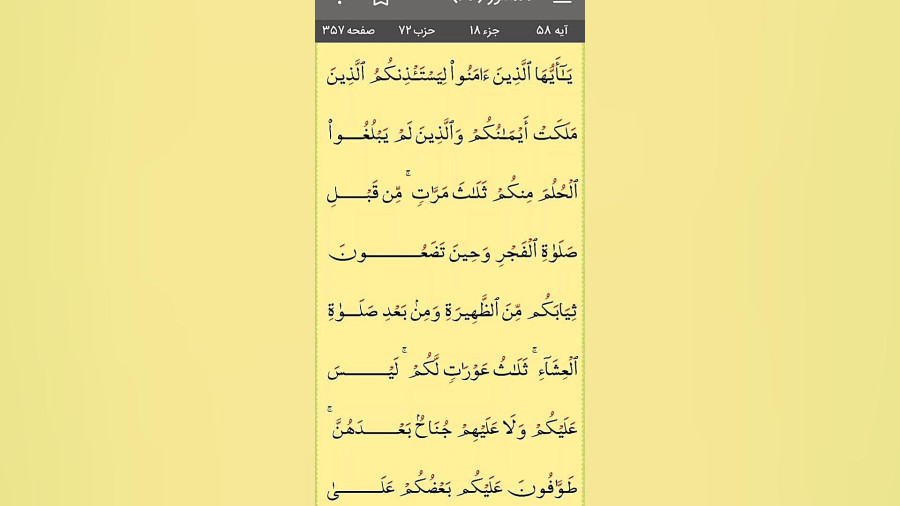 آیه ۵۸ جزء ۱۸ حزب ۷۲ صفحه ۳۵۷
يَـٰٓأَيُّهَا ٱلَّذِينَ ءَامَنُوا۟ لِيَسْتَـْٔذِنكُمُ ٱلَّذِينَ
مَلَكَتْ أَيْمَـٰنُكُمْ وَٱلَّذِينَ لَمْ يَبْلُغُــوا۟
ٱلْحُلُمَ مِنكُمْ ثَلَـٰثَ مَرَّٰتٍ ۚ مِّن قَبْــــلِ
صَلَوٰةِ ٱلْفَجْرِ وَحِينَ تَضَعُــــــونَ
ثِيَابَكُم مِّنَ ٱلظَّهِيرَةِ وَمِنۢ بَعْدِ صَلَــوٰةِ
ٱلْعِشَآءِ ۚ ثَلَـٰثُ عَوْرَٰتٍ لَّكُمْ ۚ لَيْـــــسَ
عَلَيْكُمْ وَلَا عَلَيْهِمْ جُنَاحٌۢ بَعْـــــدَهُنَّ ۚ
طَوَّٰفُونَ عَلَيْكُم بَعْضُكُمْ عَلَـــــىٰ